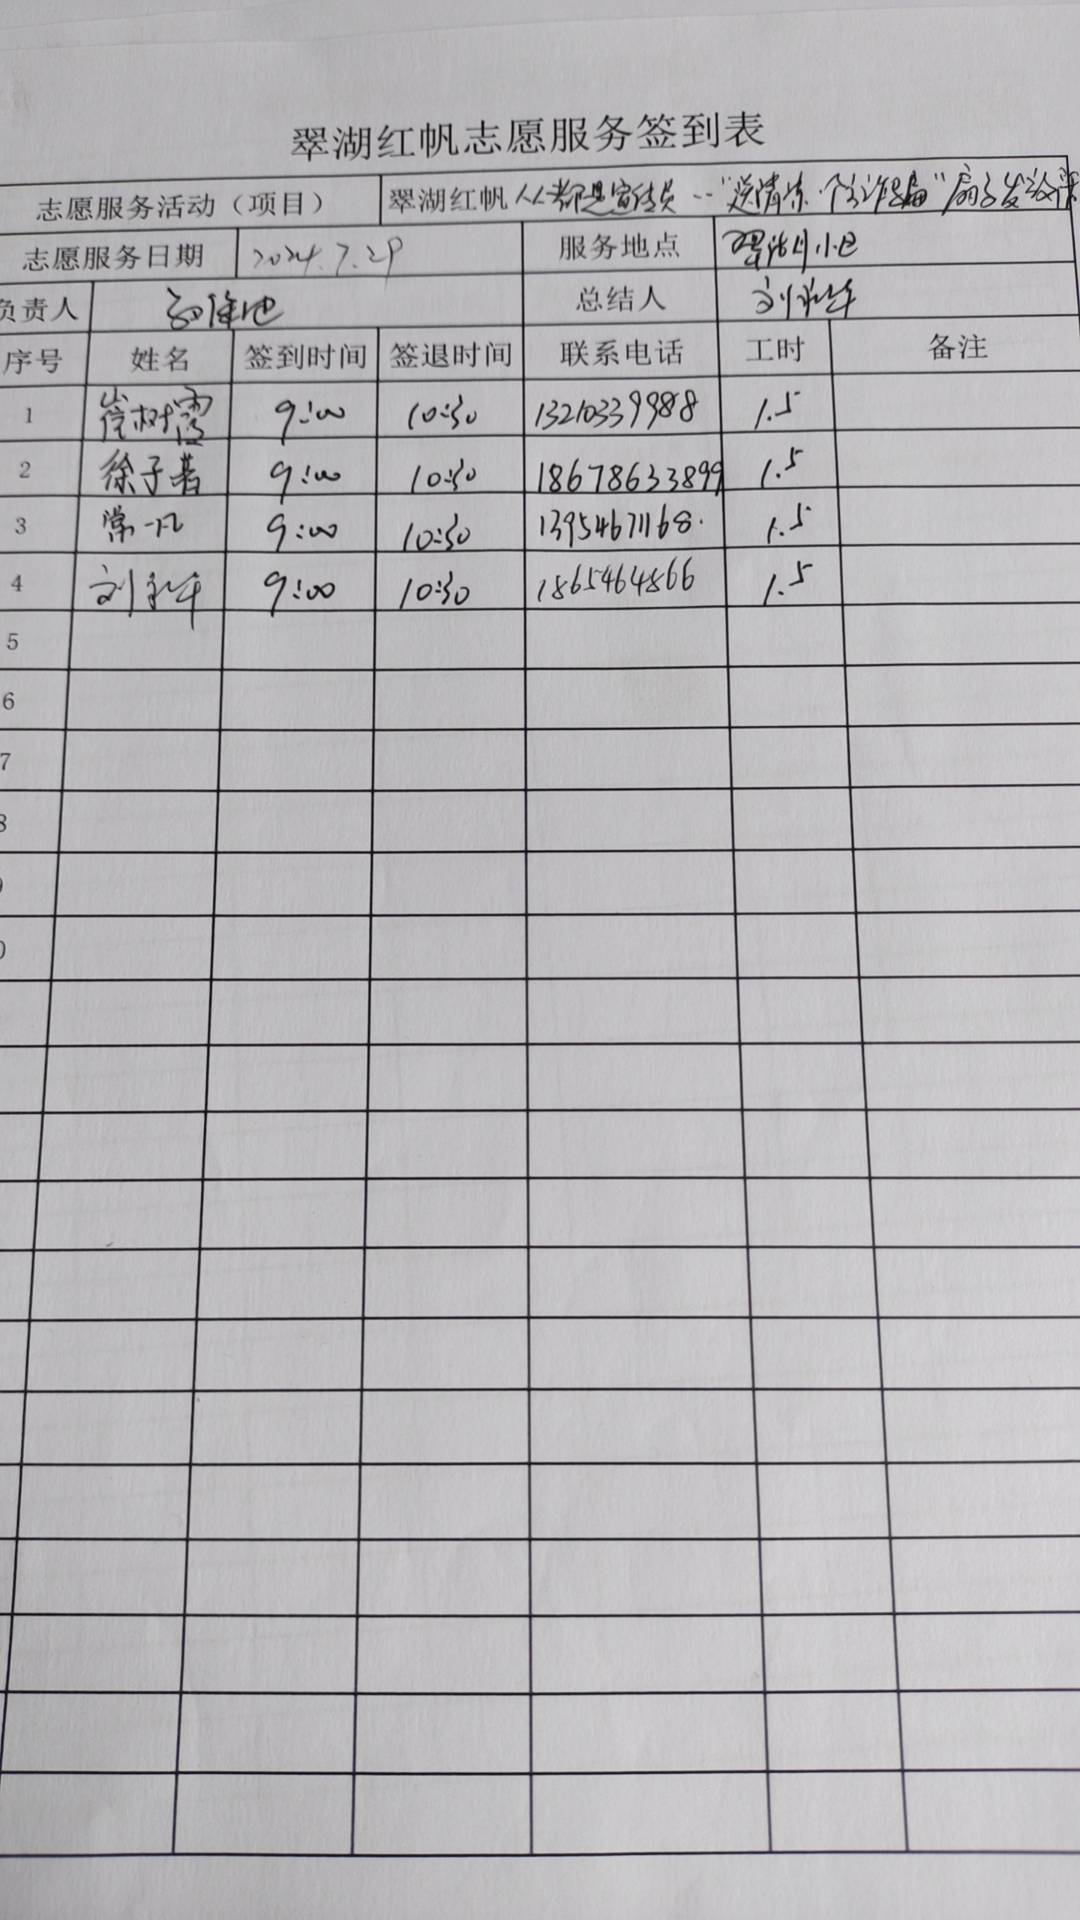 翠湖红帆志愿服务签到表
志愿服务活动（项目） 翠湖红帆人人都是宣传员--"送清凉 防诈骗"扇子发放
志愿服务日期 2024.7.29 服务地点 翠湖月小区
负责人 总结人 刘永华
序号 姓名 签到时间 签退时间 联系电话 工时 备注
1 崔树霞 9:00 10:30 13210339988 1.5
2 徐子茜 9:00 10:30 18678633899 1.5
3 常一凡 9:00 10:30 13954671168. 1.5
4 刘永华 9:00 10:30 1865464866 1.5
5
6
7
8
9
0